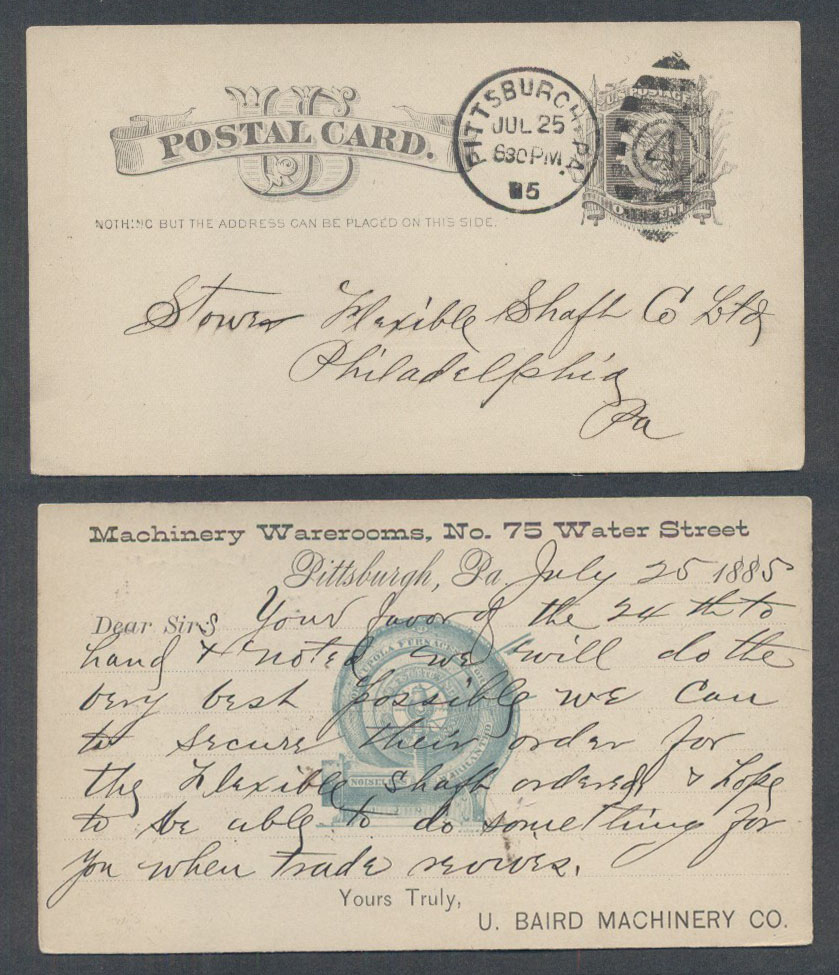 US
POSTAL CARD.
NOTHING BUT THE ADDRESS CAN BE PLACED ON THIS SIDE.
PITTSBURGH PA.
JUL 25
630PM
5
U.S. POSTAGE
4
ONE CENT
Stower Flexible Shaft Co Ltd
Philadelphia
Pa
Machinery Warerooms, No. 75 Water Street
Pittsburgh, Pa. July 25 1885
Dear Sirs Your favor of the 24th to
hand & noted we will do the
very best possible we can
to secure their order for
the Flexible Shaft ordered & hope
to be able to do something for
you when trade revives.
CUPOLA FURNACES
Yours Truly,
U. BAIRD MACHINERY CO.